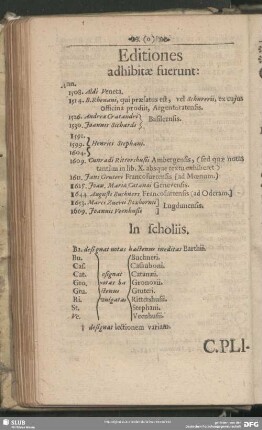 (o)
Editiones
adhibitæ fuerunt:
Ann.
1508. Aldi Veneta.
1514. B. Rhenani, qui præfatus est; vel Schurerii, ex cujus
officina prodiit, Argentoratensis.
1526. Andreæ Cratandri
1530. Joannis Sichardi
} Basileensis.
1591.
1599.
1604.
} Henrici Stephani.
1609. Cunradi Rittershusii Ambergensis, (sed quæ notas
tantùm in lib. X. absque textu exhibet)
1611. Jani Gruteri Francofurtensis [ad Moenum.]
1615. Joan. Mariæ Catanæi Genevensis.
1644 Augusti Buchneri Francofurtensis [ad Oderam.]
1653. Marci Zuerii Boxhornii
1669. Joannis Veenhusii
} Lugdunensis.
In scholiis,
Ba. designat notas hactenus ineditas Barthii.
Bu.
Cas.
Cat.
Gro.
Gru.
Ri.
St.
Ve.
Buchneri.
Casauboni.
Catanæi.
Gronovii.
Gruteri.
Rittershusii.
Stephani.
Veenhusii.
† designat lectionem variam.
C. PLI-
SLUB